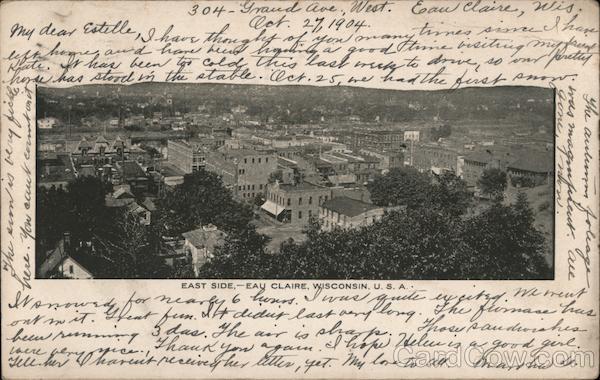 304 - Grand Ave, West. Eau Claire, Wis.
Oct. 27, 1904.
My dear Estelle,
I have thought of you many times since I have
left home, and have been having a good time visiting my friend
Kate. It has been to cold this last week to drive, so our pretty
horse has stood in the stable. Oct. 25, we had the first snow.
The autumn foliage
was magnificent all
The sun is very fickle
here. You can't
EAST SIDE,—EAU CLAIRE, WISCONSIN, U. S. A.
It snowed for nearly 6 hours. I was quite excited. We went
out in it. Great fun. It didn't last very long. The furnace has
been running 3 das. The air is sharp. Those sandwiches
were very nice! Thank you again. I hope Helen is a good girl.
Tell her I haven't received her letter, yet. My love to all.
CardCow.com